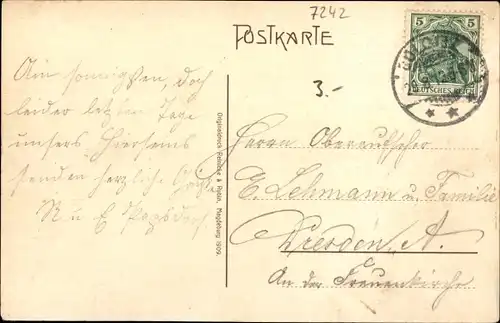 7242
POSTKARTE
5 5
DEUTSCHES REICH
3.-
Am sonnigsten, doch
leider letzten Tage
unsers Hierseins
senden herzliche Grüße
R. u. E.
Originaldruck Reinicke & Rubin, Magdeburg 1909.
Herrn
E. Lehmann u. Familie
Dresden, A.
An der Frauenkirche